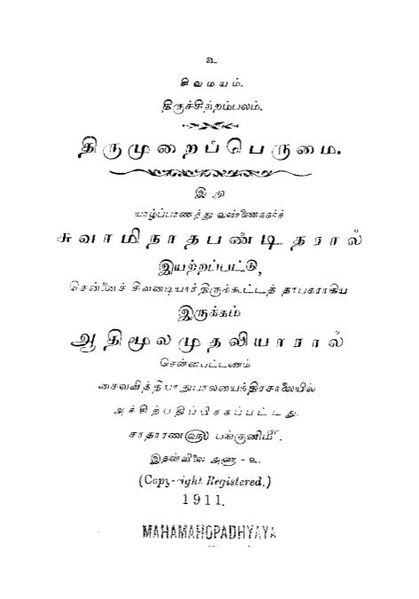 உ
சிவமயம்.
திருச்சிற்றம்பலம்.
திருமுறைப்பெருமை.
இஃது
யாழ்ப்பாணத்து வண்ணைநகர்ச்
சுவாமிநாதபண்டிதரால்
இயற்றப்பட்டு,
சென்னைச் சிவனடியார்திருக்கூட்டத் தாபகராகிய
இருக்கம்
ஆதிமூலமுதலியாரால்
சென்னபட்டணம்
சைவவித்தியாநுபாலனயந்திரசாலையில்
அச்சிற்பதிப்பிக்கப்பட்டது.
சாதாரண௵ பங்குனி௴.
இதன்விலை அணா - உ.
(Copy-right Registered.)
1911.
MAHAMAHOPADHYAYA